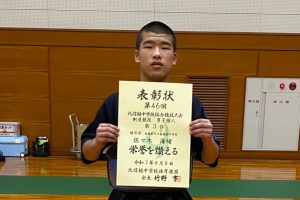 表彰状
第46回
北信越中学校総合競技大会
剣道競技 男子個人
第3位
佐々木
栄誉を讃える
令和7年8月6日
北信越中学校体育連盟
会長 竹野